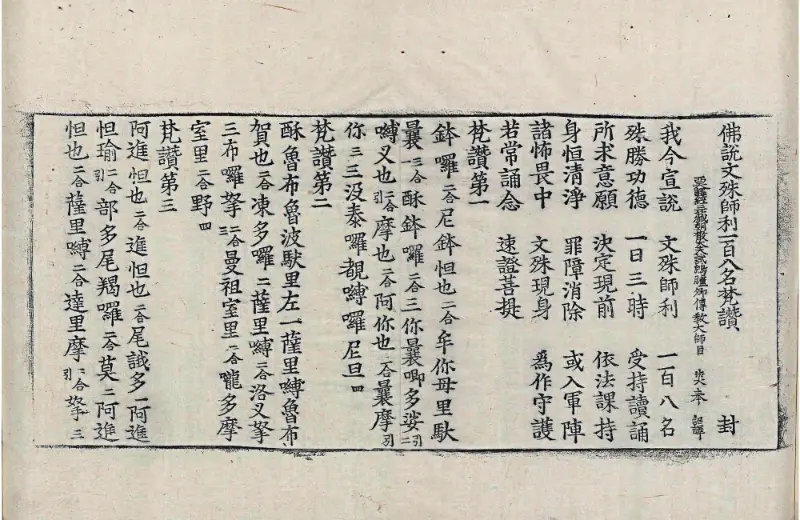 佛說文殊師利一百八名梵讚 封
受譯經三藏朝散大夫試鴻臚卿傳教大師臣 奉 詔譯
我今宣說 文殊師利 一百八名
殊勝功德 一日三時 受持讀誦
所求意願 決定現前 依法課持
身恒清淨 罪障消除 或入軍陣
諸怖畏中 文殊現身 為作守護
若常誦念 速證菩提
梵讚第一
鉢囉二合尼鉢怛也二合牟你母里馱
曩一三合酥鉢囉二合三你曩唧多娑引二
嚩叉也二合引摩也二合阿你也二合曩摩引
你三三沒泰囉覩嚩囉尼旦四
梵讚第二
酥魯布魯波馱里左一薩里嚩魯布
賀也二合凍多囉二薩里嚩二合洛叉拏
三布囉拏二合曼祖室里二合嚨多摩
室里二合野四
梵讚第三
阿進怛也二合進怛也二合尾誐多一阿進
怛瑜二合引部多尾羯囉二合莫二阿進
怛也二合薩里嚩二合達里摩二合引拏三